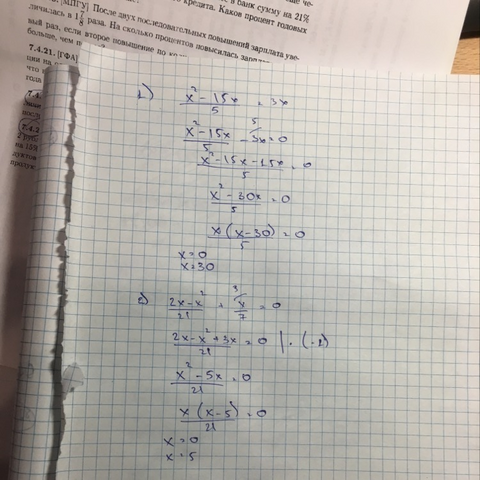 в банк сумму на 21%
кредита. Каков процент годовых
[МПГУ] После двух последовательных повышений зарплата уве-
личилась в 1 7/8 раза. На сколько процентов повысилась зарплата
вый раз, если второе повышение по
больше, чем
7.4.21. [ГФА]
1) (x² - 15x)/5 = 3x
(x² - 15x)/5 - 3x = 0
(x² - 15x - 15x)/5 = 0
(x² - 30x)/5 = 0
x(x - 30)/5 = 0
x = 0
x = 30
2) (2x - x²)/21 + x/7 = 0
(2x - x² + 3x)/21 = 0 | · (-1)
(x² - 5x)/21 = 0
x(x - 5)/21 = 0
x = 0
x = 5